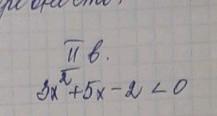 II в.
3x²+5x-2<0